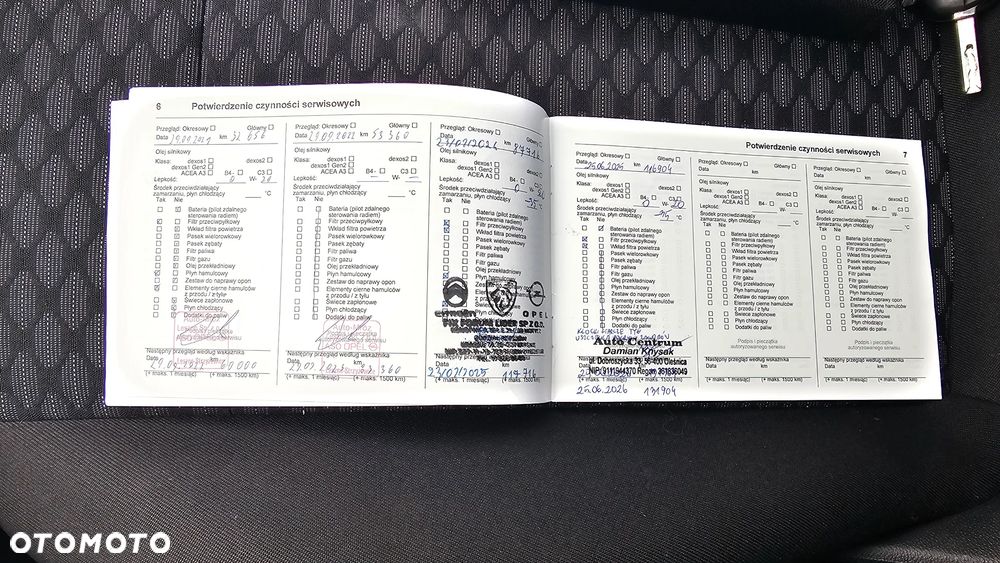 6 Potwierdzenie czynności serwisowych
Przegląd: Okresowy Główny
Data 29.09.2021 km 32 656
Olej silnikowy
Klasa: dexos1 dexos2
dexos1 Gen2
ACEA A3 B4- C3
Lepkość: 0 W-
Środek przeciwdziałający
zamarzaniu, płyn chłodzący: °C
Tak Nie
Bateria (pilot zdalnego
sterowania radiem)
Filtr przeciwpyłkowy
Wkład filtra powietrza
Pasek wielorowkowy
Pasek zębaty
Filtr paliwa
Filtr gazu
Olej przekładniowy
Płyn hamulcowy
Zestaw do naprawy opon
Elementy cierne hamulców
z przodu / z tyłu
Świece zapłonowe
Płyn chłodzący
Dodatki do paliw
Następny przegląd według wskaźnika
Data km
29.09.2022 60 000
(+ maks. 1 miesiąc) (+ maks. 1500 km)
Przegląd: Okresowy Główny
Data 29.09.2022 km 53 360
Olej silnikowy
Klasa: dexos1 dexos2
dexos1 Gen2
ACEA A3 B4- C3
Lepkość: W-
Środek przeciwdziałający
zamarzaniu, płyn chłodzący: °C
Tak Nie
Bateria (pilot zdalnego
sterowania radiem)
Filtr przeciwpyłkowy
Wkład filtra powietrza
Pasek wielorowkowy
Pasek zębaty
Filtr paliwa
Filtr gazu
Olej przekładniowy
Płyn hamulcowy
Zestaw do naprawy opon
Elementy cierne hamulców
z przodu / z tyłu
Świece zapłonowe
Płyn chłodzący
Dodatki do paliw
Następny przegląd według wskaźnika
Data km
(+ maks. 1 miesiąc) (+ maks. 1500 km)
Przegląd: Okresowy Główny
Data km 87716
Olej silnikowy
Klasa: dexos1 dexos2
dexos1 Gen2
ACEA A3 B4- C3
Lepkość: 0 W-
Środek przeciwdziałający
zamarzaniu, płyn chłodzący: -35 °C
Tak Nie
Bateria (pilot zdalnego
sterowania radiem)
Filtr przeciwpyłkowy
Wkład filtra powietrza
Pasek wielorowkowy
Pasek zębaty
Filtr paliwa
Filtr gazu
Olej przekładniowy
Płyn hamulcowy
CITROËN OPEL
FIX FORUM LIDER SP Z O.O.
Następny przegląd według wskaźnika
23/07/2025 117 716
(+ maks. 1 miesiąc) (+ maks. 1500 km)
Potwierdzenie czynności serwisowych 7
Przegląd: Okresowy Główny
Data 25.06.2025 km 116904
Olej silnikowy
Klasa: dexos1 dexos2
dexos1 Gen2
ACEA A3 B4- C3
Lepkość: 0 W- 20
Środek przeciwdziałający
zamarzaniu, płyn chłodzący: °C
Tak Nie
Bateria (pilot zdalnego
sterowania radiem)
Filtr przeciwpyłkowy
Wkład filtra powietrza
Pasek wielorowkowy
Pasek zębaty
Filtr paliwa
Filtr gazu
Olej przekładniowy
Płyn hamulcowy
Zestaw do naprawy opon
Elementy cierne hamulców
z przodu / z tyłu
Świece zapłonowe
Płyn chłodzący
Dodatki do paliw
Auto Centrum
Damian Knysak
ul. Dobroszycka 33, 56-400 Oleśnica
(+ maks. 1 miesiąc) (+ maks. 1500 km)
25.06.2026 131904
Przegląd: Okresowy Główny
Data km
Olej silnikowy
Klasa: dexos1 dexos2
dexos1 Gen2
ACEA A3 B4- C3
Lepkość: W-
Środek przeciwdziałający
zamarzaniu, płyn chłodzący: °C
Tak Nie
Bateria (pilot zdalnego
sterowania radiem)
Filtr przeciwpyłkowy
Wkład filtra powietrza
Pasek wielorowkowy
Pasek zębaty
Filtr paliwa
Filtr gazu
Olej przekładniowy
Płyn hamulcowy
Zestaw do naprawy opon
Elementy cierne hamulców
z przodu / z tyłu
Świece zapłonowe
Płyn chłodzący
Dodatki do paliw
Podpis i pieczątka
autoryzowanego serwisu
Następny przegląd według wskaźnika
Data km
(+ maks. 1 miesiąc) (+ maks. 1500 km)
Przegląd: Okresowy Główny
Data km
Olej silnikowy
Klasa: dexos1 dexos2
dexos1 Gen2
ACEA A3 B4- C3
Lepkość: W-
Środek przeciwdziałający
zamarzaniu, płyn chłodzący: °C
Tak Nie
Bateria (pilot zdalnego
sterowania radiem)
Filtr przeciwpyłkowy
Wkład filtra powietrza
Pasek wielorowkowy
Pasek zębaty
Filtr paliwa
Filtr gazu
Olej przekładniowy
Płyn hamulcowy
Zestaw do naprawy opon
Elementy cierne hamulców
z przodu / z tyłu
Świece zapłonowe
Płyn chłodzący
Dodatki do paliw
Podpis i pieczątka
autoryzowanego serwisu
Następny przegląd według wskaźnika
Data km
(+ maks. 1 miesiąc) (+ maks. 1500 km)
OTOMOTO